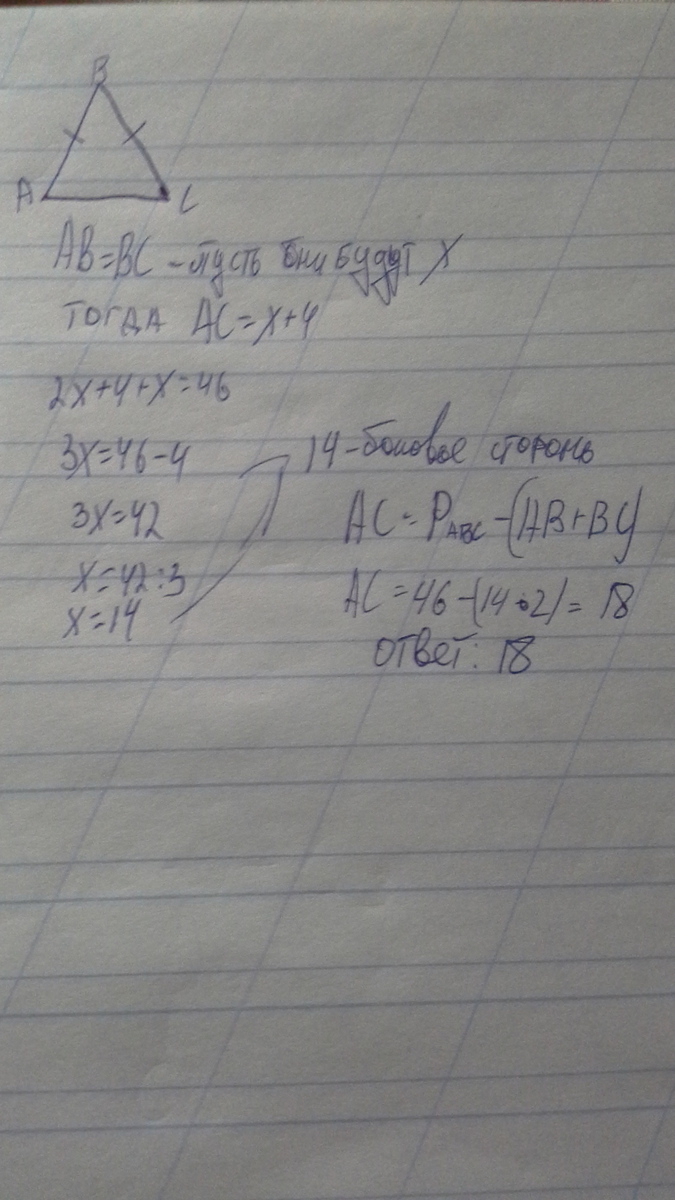 B
A C
AB=BC - пусть они будут x
тогда AC=x+4
2x+4+x=46
3x=46-4
3x=42
x=42:3
x=14
14-боковые стороны
AC=P ABC -(AB+BC)
AC=46-(14•2)=18
ответ: 18